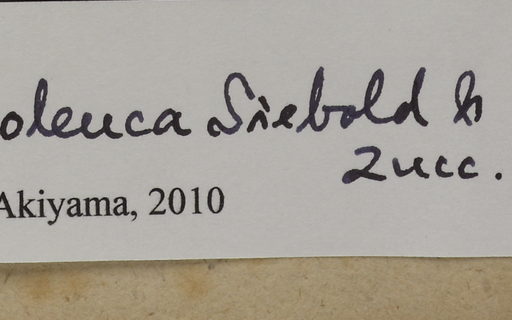 oleuca Siebold &
Zucc.
Akiyama, 2010